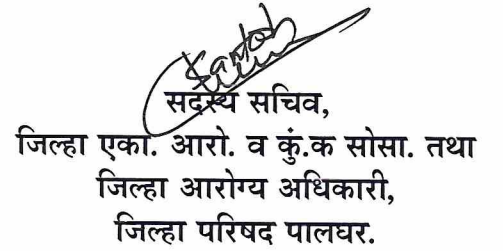 सदस्य सचिव,
जिल्हा एका. आरो. व कुं.क सोसा. तथा
जिल्हा आरोग्य अधिकारी,
जिल्हा परिषद पालघर.